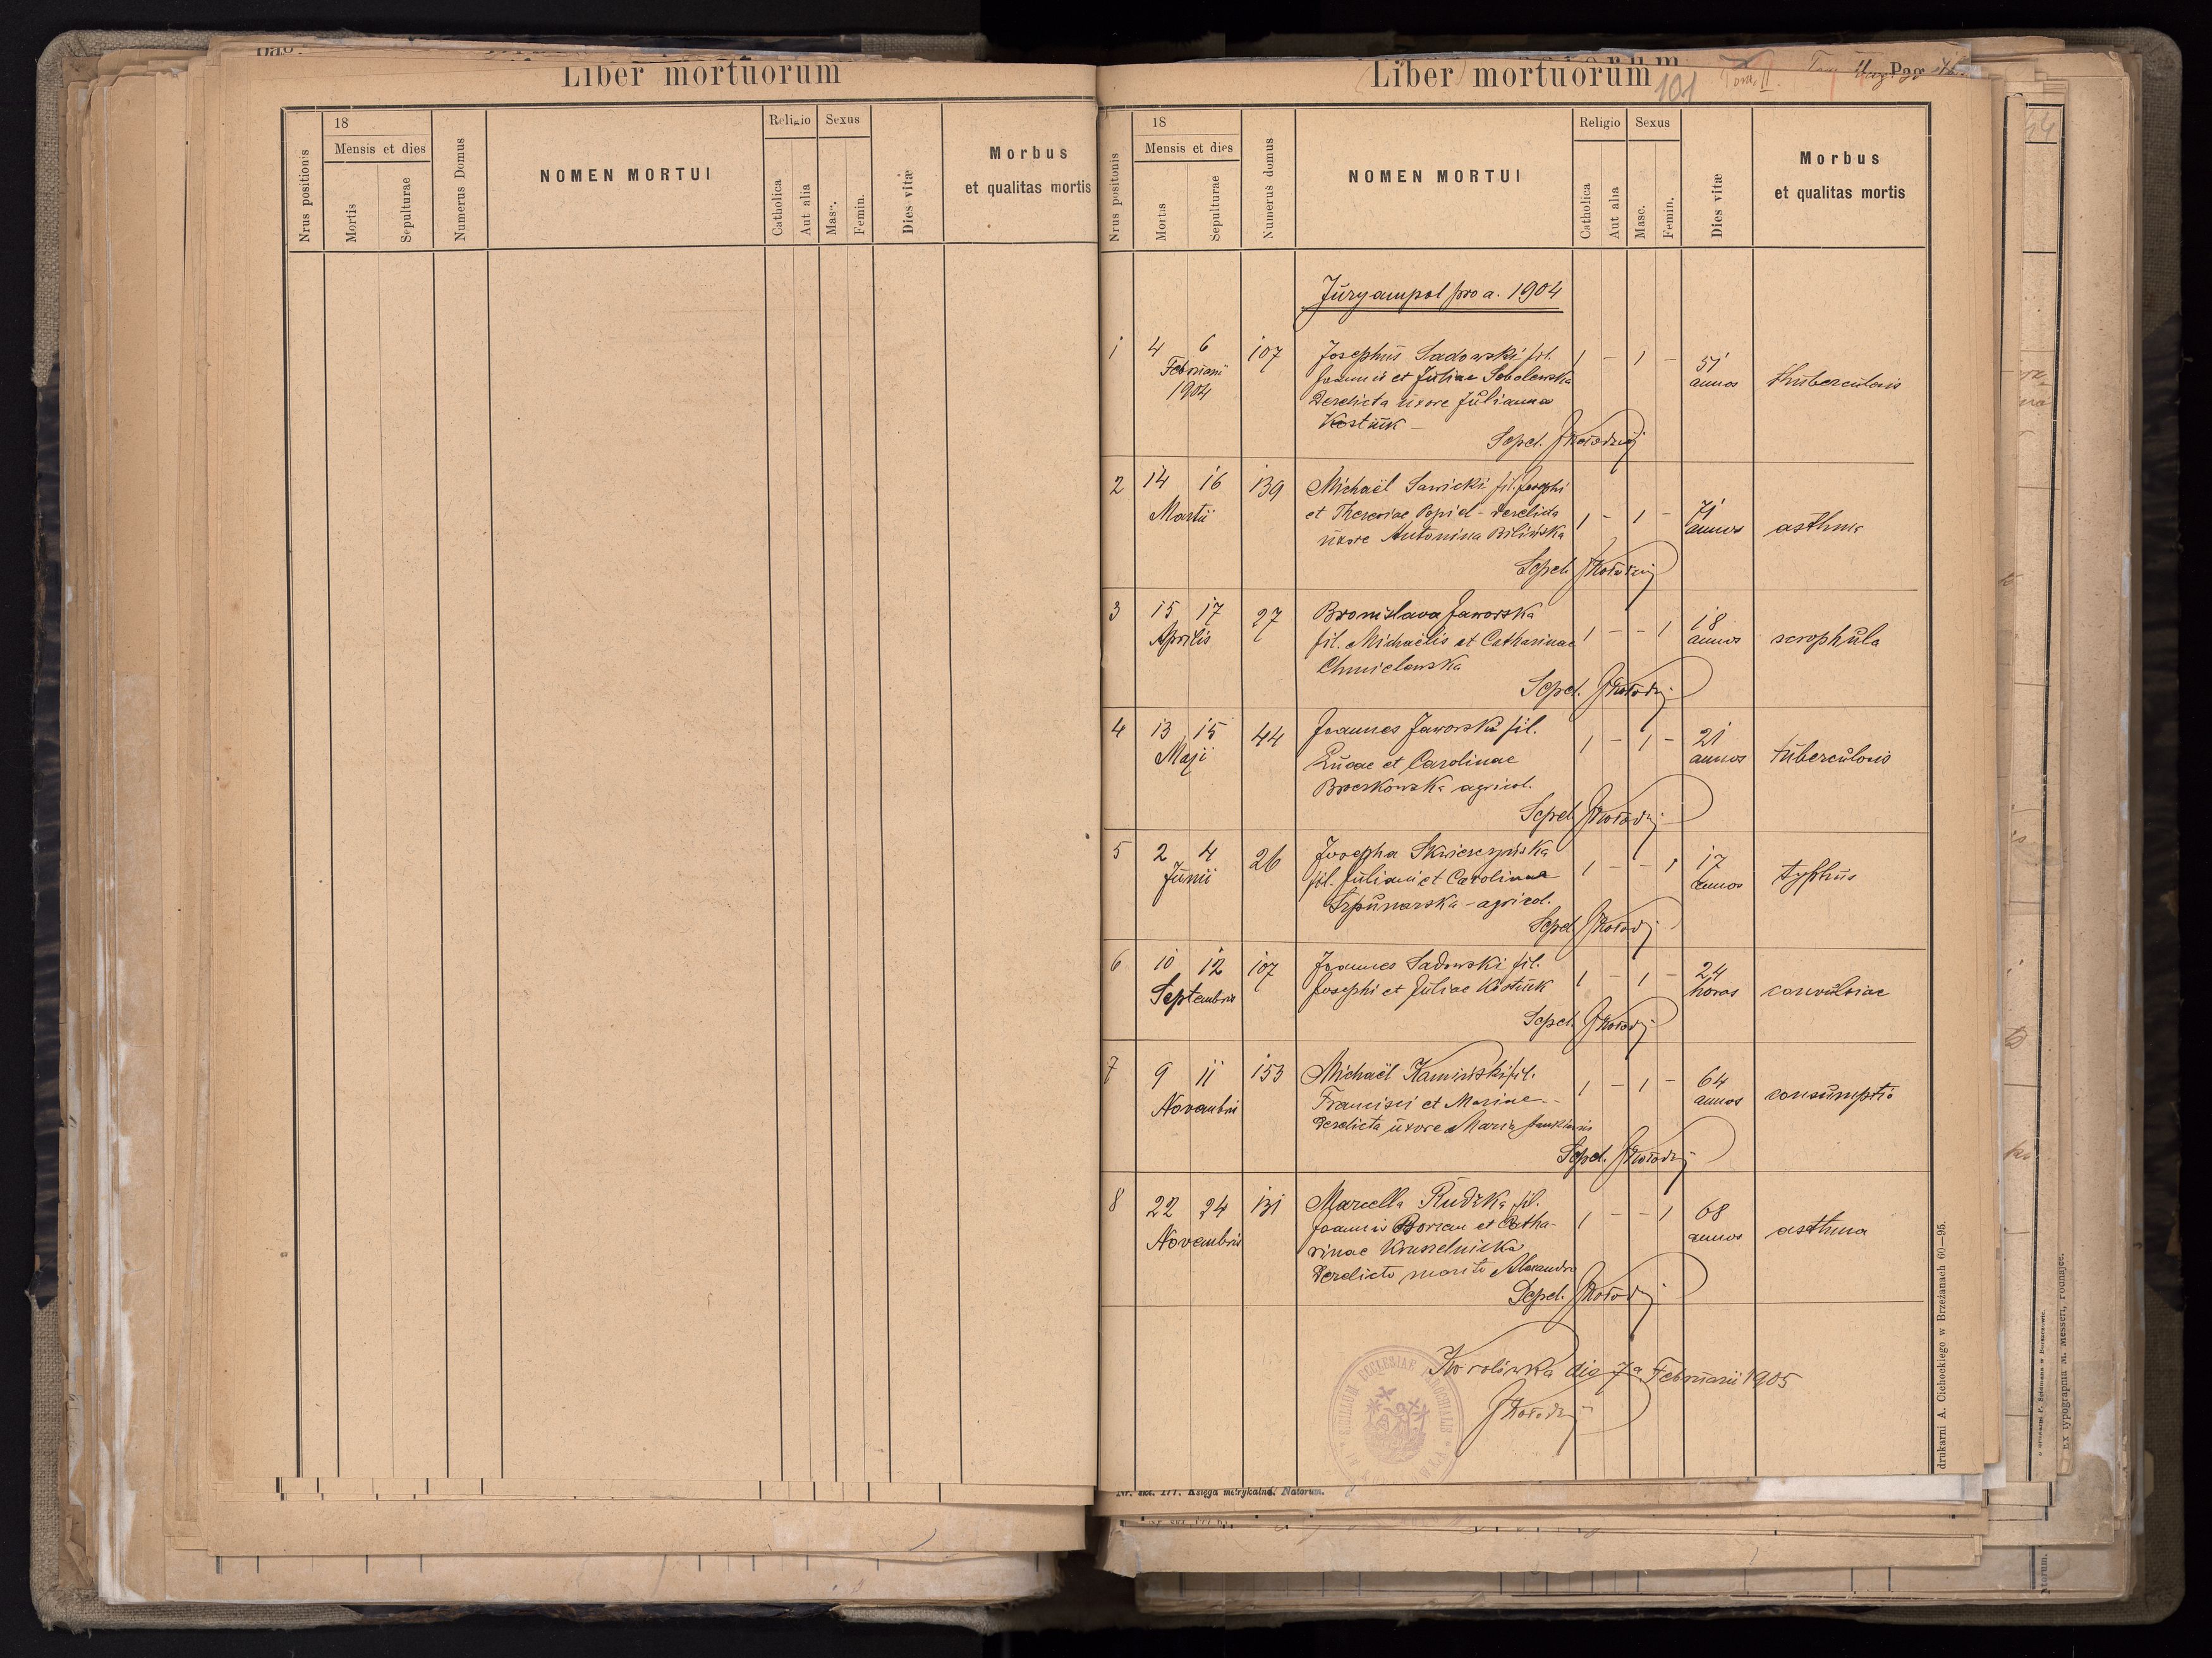 Liber mortuorum
Nrus positionis
18
Mensis et dies
Mortis
Sepulturae
Numerus Domus
NOMEN MORTUI
Religio
Catholica
Aut alia
Sexus
Masc.
Femin.
Dies vitæ
Morbus
et qualitas mortis
Liber mortuorum
101
Tom. II.
Pag
Nrus positonis
18
Mensis et dies
Mortis
Sepulturae
Numerus domus
NOMEN MORTUI
Religio
Catholica
Aut alia
Sexus
Masc.
Femin.
Dies vitæ
Morbus
et qualitas mortis
Juryampol pro a. 1904
1 4 6 107 Josephus Sadowski fil. 1 – 1 – 51
Februarii Joannis et Juliae Sobolewska annos thuberculosis
1904 Derelicta uxore Julianna
Kostiuk –
Sepel. JKołodziej
2 14 16 139 Michaël Sawicki fil. Josephi
Martii et Theresiae Popiel – derelicta 1 – 1 – 71
uxore Antonina Bilińska annos asthma
Sepel. JKołodziej
3 15 17 27 Bronislava Jaworska 18
Aprilis fil. Michaëlis et Catharinae 1 – – 1 annos scrophula
Chmielowska
Sepel. JKołodziej
4 13 15 44 Joannes Jaworski fil. 1 – 1 – 21
Maji Lucae et Carolinae annos tuberculosis
agricol.
Sepel. JKołodziej
5 2 4 26 Josepha Skwierczyńska 1 – – 1 17
Junii fil. Juliani et Carolinae annos typhus
Szpunarska – agricol.
Sepel. JKołodziej
6 10 12 107 Joannes Sadowski fil. 1 – 1 – 24
Septembris Josephi et Juliae Kostiuk horas convulsiae
Sepel. JKołodziej
7 9 11 153 Michaël Kamiński fil. 1 – 1 – 64
Novembris Francisci et Mariae – annos consumptio
Derelicta uxore Maria
Sepel. JKołodziej
8 22 24 131 Marcella Rudzka fil. 1 – – 1 68
Novembris Joannis et Catha- annos asthma
rinae Kruszelnicka
Derelicto marito Alexandro
Sepel. JKołodziej
Korolówka die 7ª Februarii 1905
JKołodziej
SIGILLUM ECCLESIAE PAROCHIALIS
Nr. skł. 177. Księga metrykalna. Natorum.
drukarni A. Cichockiego w Brzeżanach 60—95.